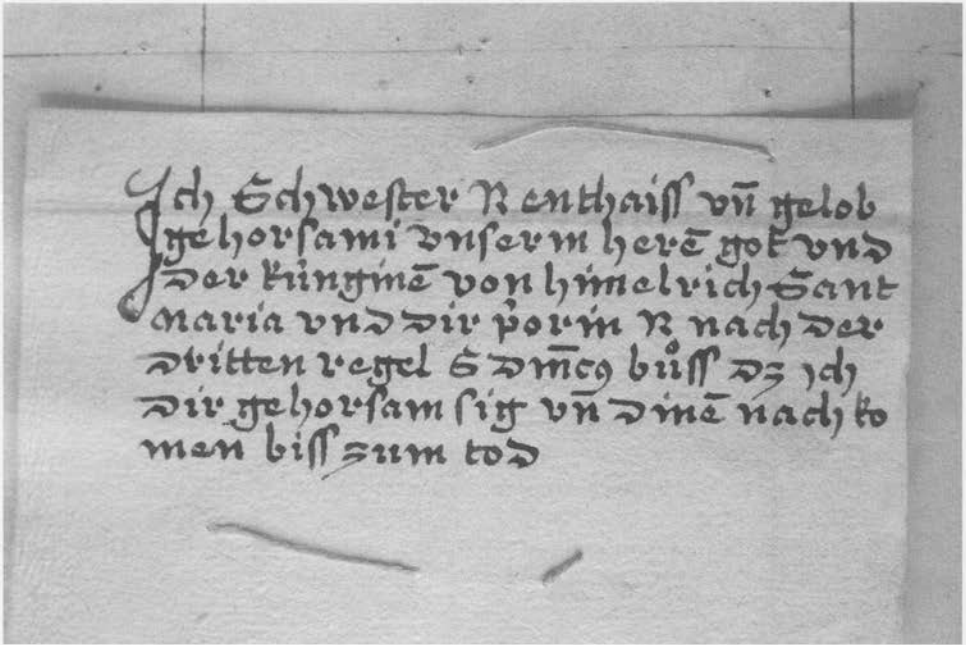 Ich Schwester N enthaiss vn̄ gelob
gehorsami vnserm herē got vnd
der künginē von himelrich Sant
maria vnd dir p̄orin N nach der
dritten regel S dm̄cꝯ bůss dz ich
dir gehorsam sig vn̄ dinē nach ko
men biss zum tod